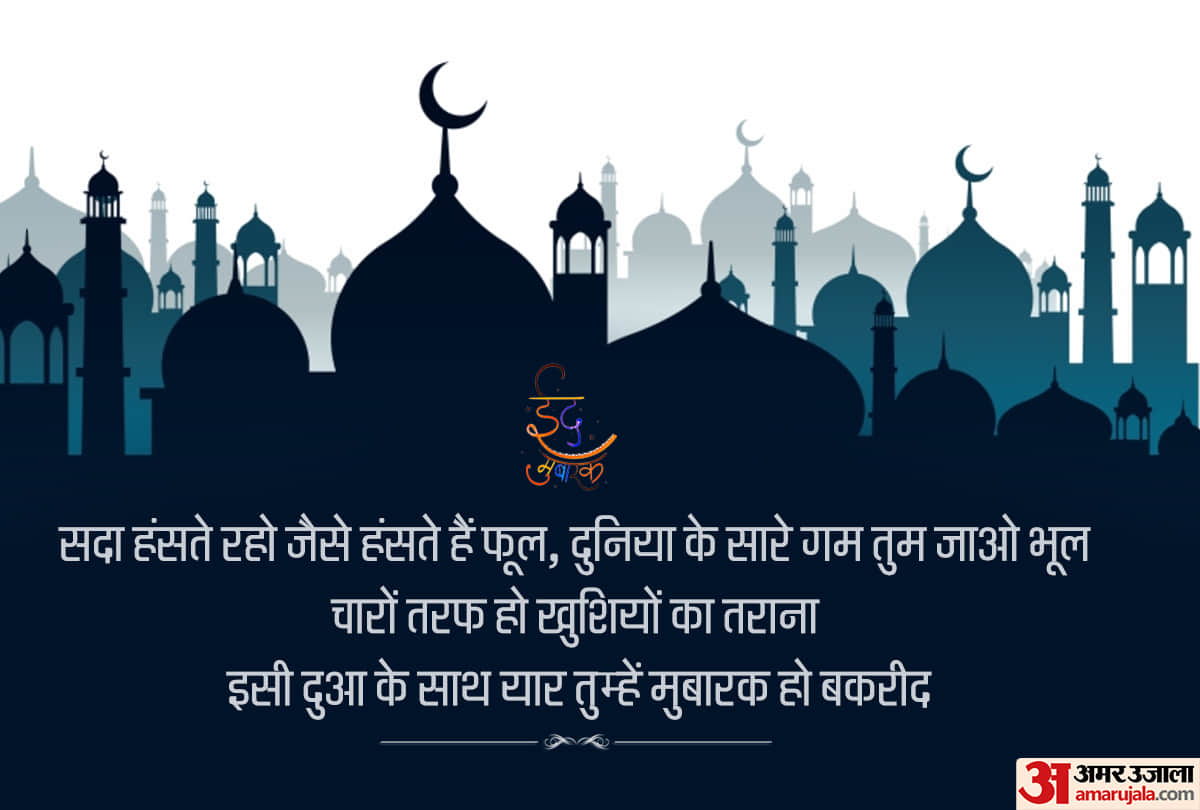 ईद
मुबारक
सदा हंसते रहो जैसे हंसते हैं फूल, दुनिया के सारे गम तुम जाओ भूल
चारों तरफ हो खुशियों का तराना
इसी दुआ के साथ यार तुम्हें मुबारक हो बकरीद
अ अमर उजाला
amarujala.com